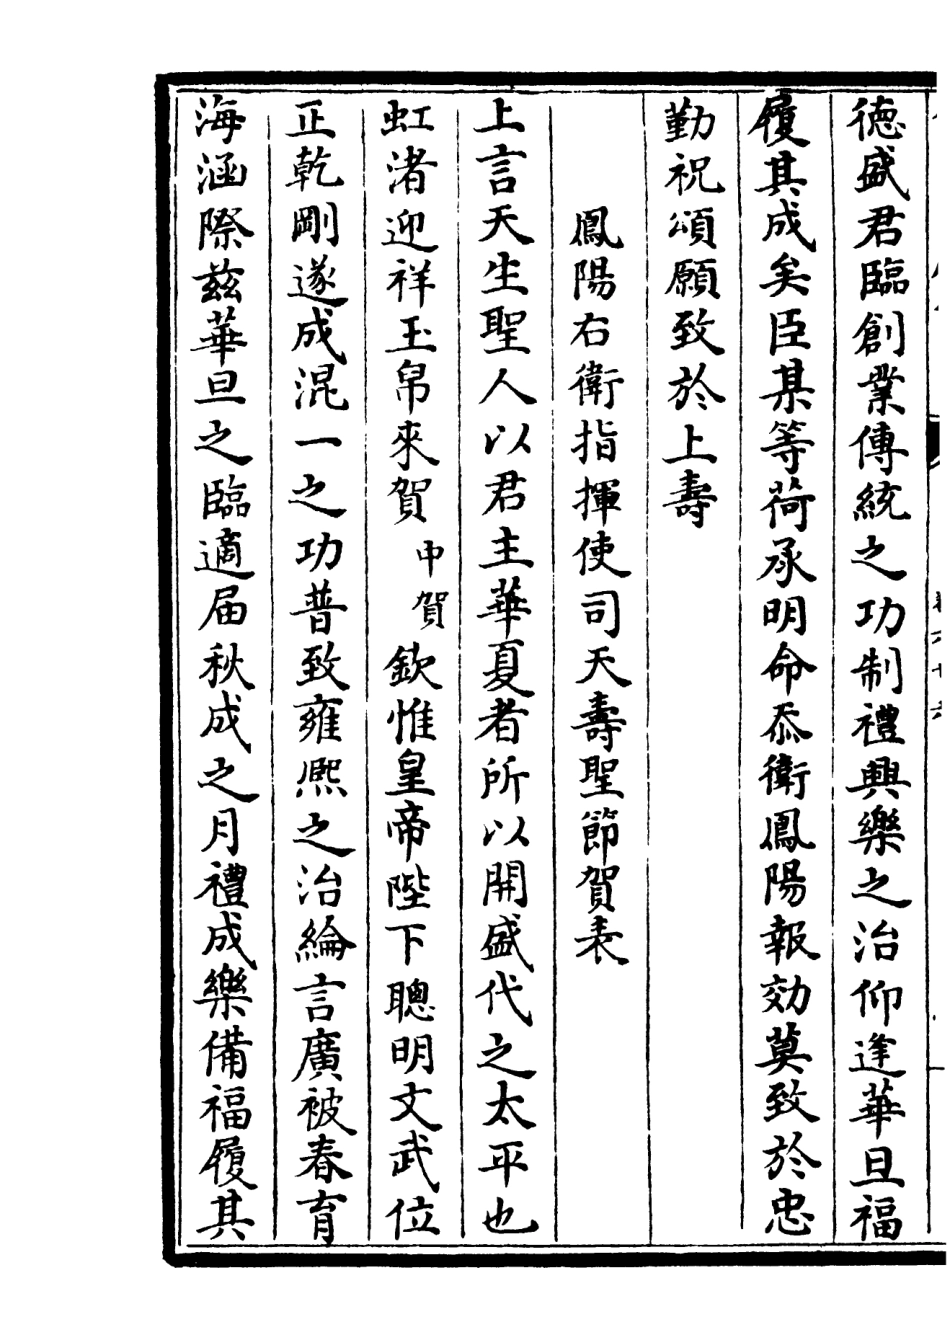 德盛君臨創業傳統之功制禮興樂之治仰逢華旦福
履其成矣臣某等荷承明命忝衛鳳陽報効莫致於忠
勤祝頌願致於上壽
鳳陽右衛指揮使司天壽聖節賀表
上言天生聖人以君主華夏者所以開盛代之太平也
虹渚迎祥玉帛來賀中賀欽惟皇帝陛下聰明文武位
正乾剛遂成混一之功普致雍熈之治綸言廣被春育
海涵際茲華旦之臨適届秋成之月禮成樂備福履其